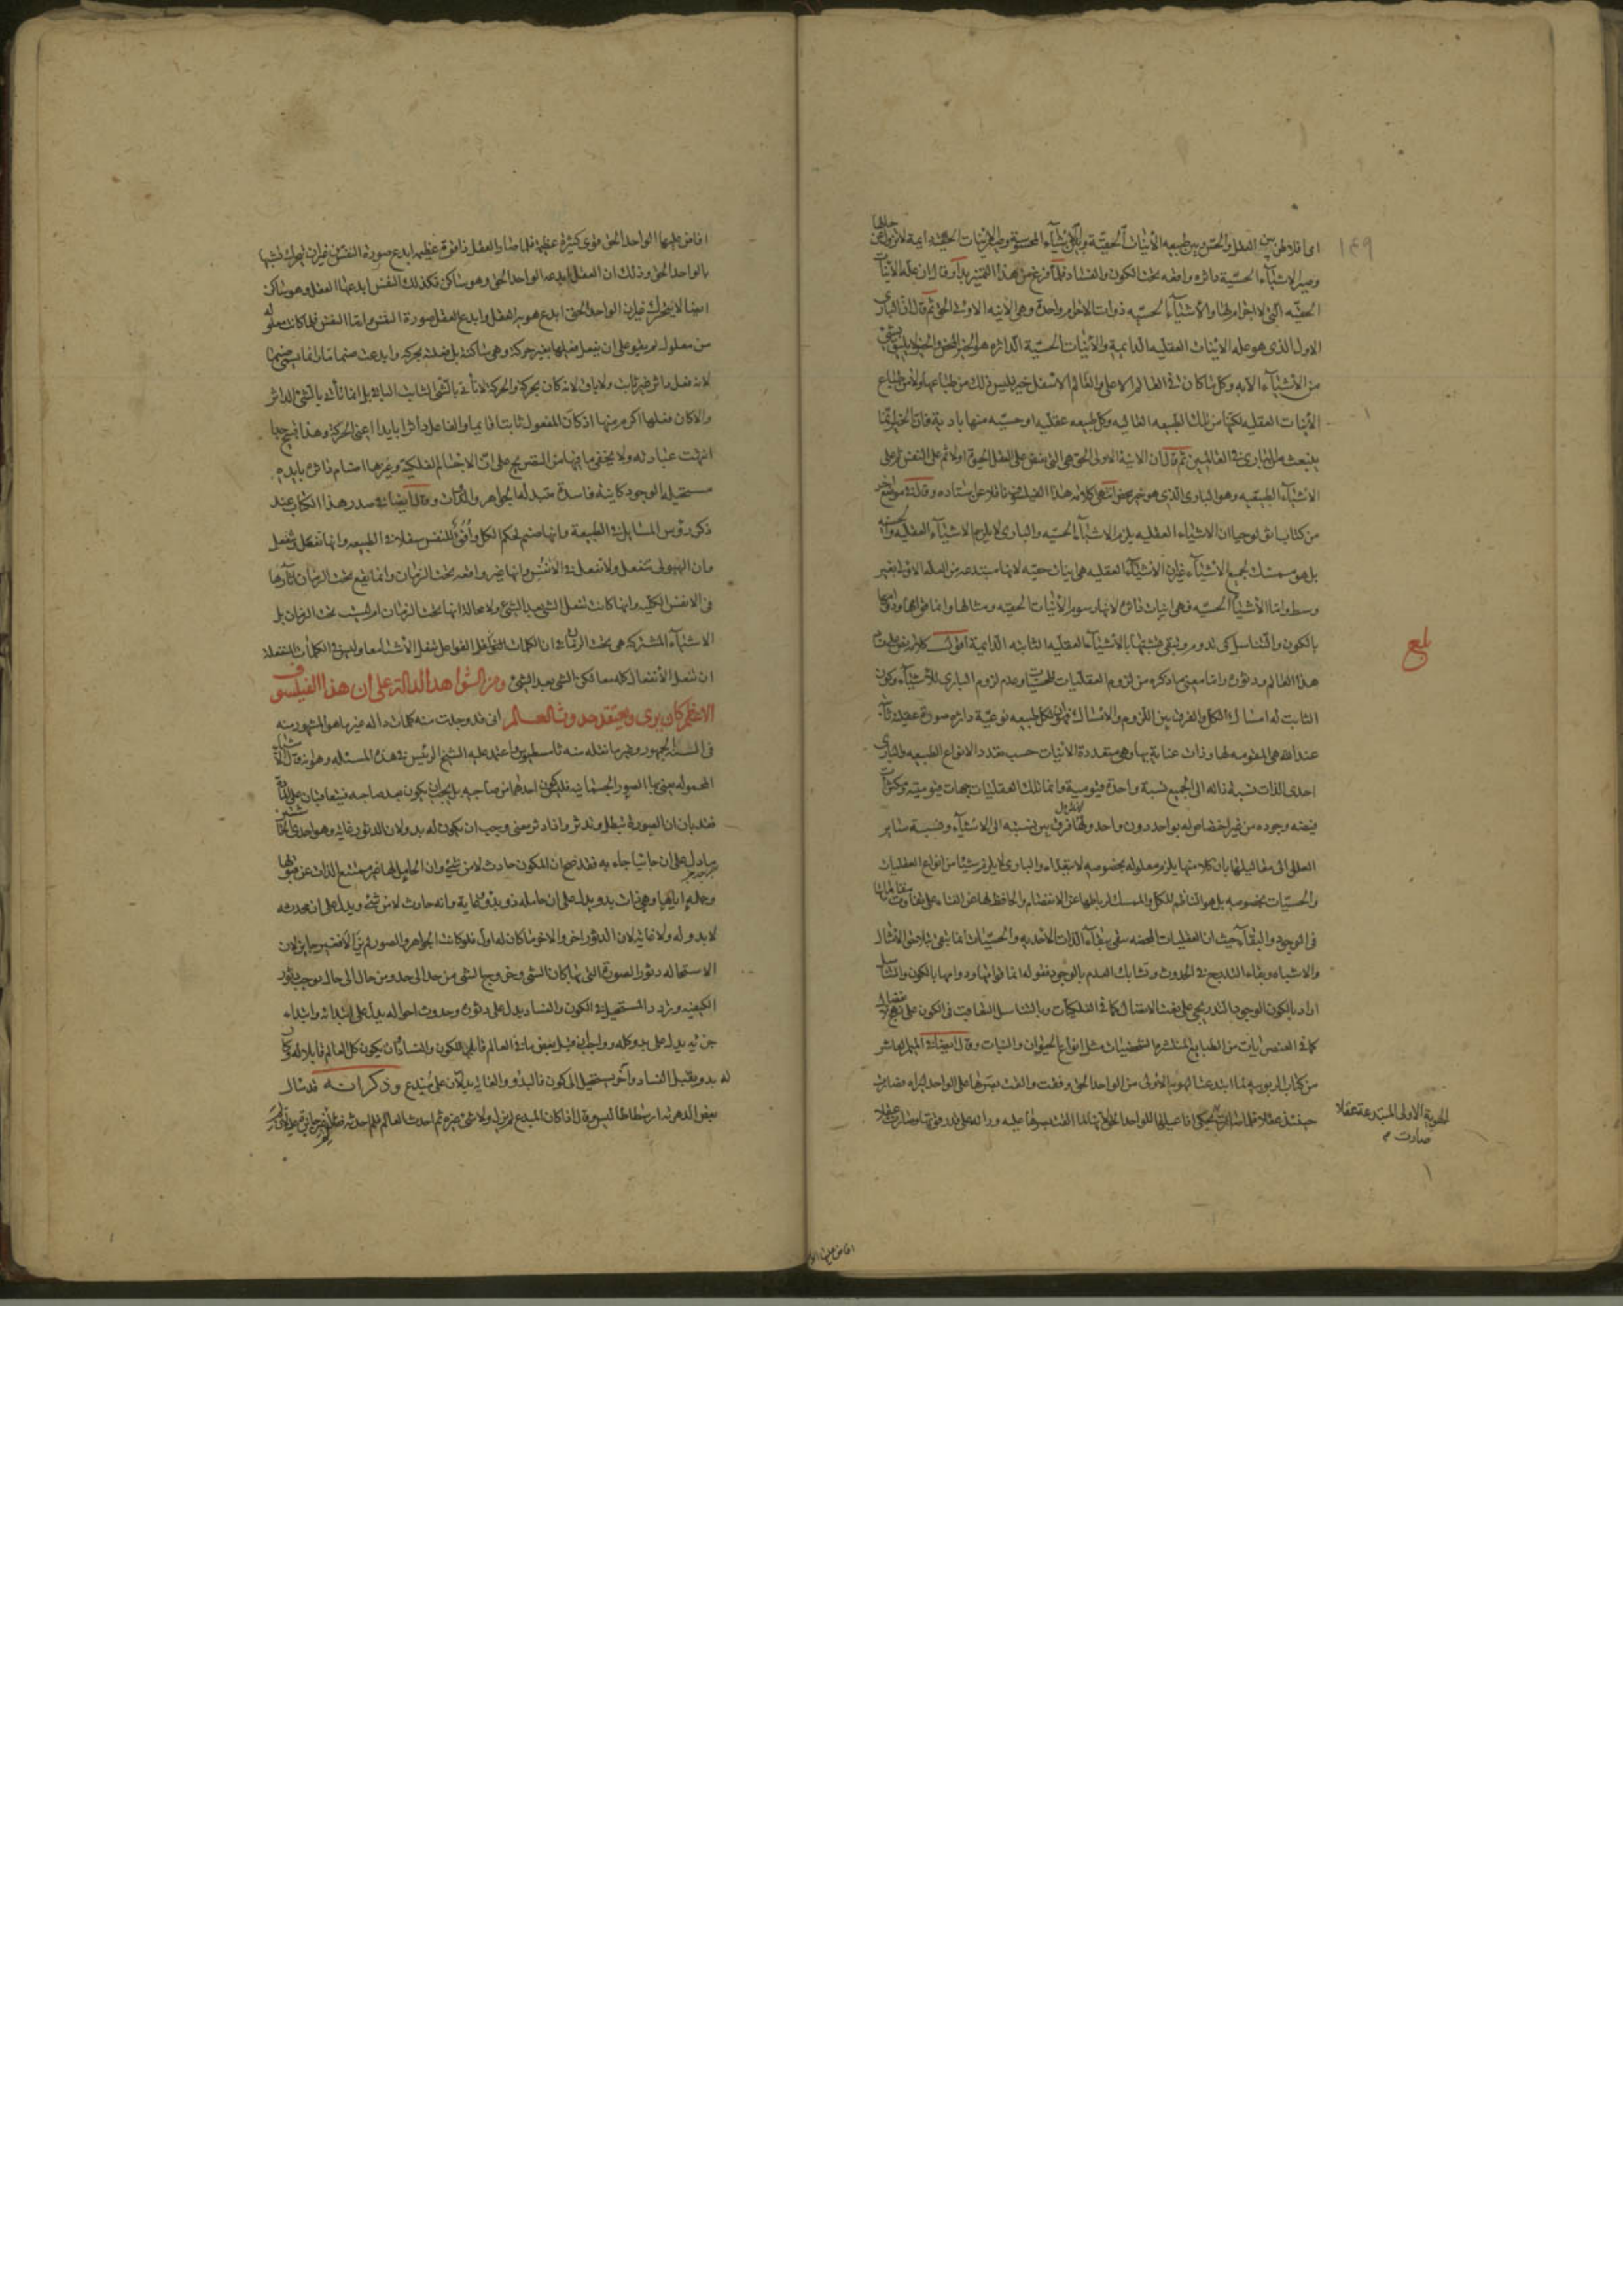 ١٤٩
اى افلاطن بين العقل والحس وبين طبيعة الأنيات الحقية وبين الأشياء المحسوسة وصير الأنيات الحقية دايمة لا تزول عن حالها
وصير الاشياء الحسية داثرة واقعة تحت الكون والفساد فلما فرغ من هذا التمييز بدأ وقال ان علة الأنيات
الحقية التى لا اجرام لها والأشياء الحسية ذوات الاجرام واحدة وهى الآنية الاولى الحق ثم قال ان البارى
الاول الذى هو علة الأنيات العقلية الدايمة والأنيات الحسية الداثرة هو الخير المحض والخير لا يليق بشئ
من الأشياء الا به وكل ما كان فى العالم الاعلى والعالم الاسفل خير فليس ذلك من طباعها ولا من طباع
الأنيات العقلية لكنها من تلك الطبيعة العالية وكل طبيعة عقلية او حسية منها بادية فان الخير انما
ينبعث من البارى فى العالمين ثم قال ان الانية الاولى الحق هى التى تفيض على العقل الحيوة اولا ثم على النفس ثم على
الاشياء الطبيعية وهو البارى الذى هو خير محض انتهى كلامه هذا الفيلسوف ناقلا عن استاده وقال فى موضع آخر
من كتاب اثولوجيا ان الاشياء العقلية يلزم الاشياء الحسية والبارى لا يلزم الاشياء العقلية والحسية
بل هو ممسك لجميع الأشياء غير ان الاشياء العقلية هى انيات حقية لانها مبتدعة من العلة الاولى بغير
وسط واما الأشياء الحسية فهى انيات داثرة لانها رسوم الأنيات الحقية ومثالها وانما قوامها ودوامها
بالكون والتناسل كى تدوم وتبقى تشبها بالأشياء العقلية الثابتة الدايمة اقول كلامه نص على حدوث
هذا العالم ودثوره واما معنى ما ذكره من لزوم العقليات للحسيات وعدم لزوم البارى للأشياء وكون
الثابت له امساك الكل والفرق بين اللزوم والامساك فهو ان لكل طبيعة نوعية دائرة صورة عقلية ثابتة
عند الله هى المقومة لها وذات عناية بها وهى متعددة الأنيات حسب تعدد الانواع الطبيعية والبارى
احدى الذات نسبة ذاته الى الجميع نسبة واحدة قيومية وانما تلك العقليات جهات قيوميته وكثرات
فيضه وجوده من غير اختصاص له بواحد دون واحد ولهذا فرق بين نسبته الى الاشياء ونسبة ساير
العلل الى معاليلها بان كلا منها يلزم معلوله بخصوصه لا بتعداه والبارى لا يلزم شيئا من انواع العقليات
والحسيات بخصوصه بل هو الناظم للكل والممسك لرباطها عن الانفصام والحافظ لها عن الفناء على تفاوت مقاماتها
فى الوجود والبقاء حيث ان العقليات المحضة يبقى ببقاء الذات الاحدية والحسيات انما يبقى بتلاحق الأمثال
والاشباه وبقاء التدريج فى الحدوث وتشابك العدم بالوجود فقوله انما قوامها ودوامها بالكون والتناسل
اراد بالكون الوجود التدريجى على نعت الاتصال كما فى الفلكيات وبالتناسل التعاقب فى الكون على نهج الانفصال
كما فى العنصريات من الطبايع المنتشرة الشخصيات مثل انواع الحيوان والنبات وقال ايضا فى الميمر العاشر
من كتاب الربوبية لما ابتدعت الهوية الاولى من الواحد الحق وقفت والقت بصرها على الواحد ليراه فصارت
حينئذ عقلا فلما صارت يحكى افاعيلها الواحد الحق لانها لما القت بصرها عليه وراته على قدر قوتها وصارت عقلا
الهوية الاولى المبتدعة عقلا
صارت م
بلغ
افاض عليها الواحد الحق قوى كثيرة عظيمة فلما صار العقل ذا قوة عظيمة ابدع صورة النفس من غير ان يتحرك تشبها
بالواحد الحق وذلك ان العقل ابدعه الواحد الحق وهو ساكن فكذلك النفس ابدعها العقل وهو ساكن
ايضا لا يتحرك غير ان الواحد الحق ابدع هوية العقل وابدع العقل صورة النفس واما النفس فلما كانت معلولة
من معلول لم يقو على ان يفعل فعلها بغير حركة وهى ساكنة بل فعلته بحركة وابدعت صنما ما وانما يسمى صنما
لانه فعل داثر غير ثابت ولا باق لانه كان بحركة والحركة لا تأتى بالشئ الثابت الباقى بل انما تأتى بالشئ الداثر
والا كان فعلها اكرم منها اذ كان المفعول ثابتا قايما والفاعل داثرا بايدا اعنى الحركة وهذا قبيح جدا
انتهت عبارته ولا يخفى ما فيها من النص الصريح على ان الاجسام الفلكية وغيرها اصنام داثرة بايدة
مستحيلة الوجود كاينة فاسدة متبدلة الجواهر والذوات وقال ايضا فى صدر هذا الكتاب عند
ذكر رؤس المسايل فى الطبيعة وانها صنم لحكم الكل وافق للنفس سفلا فى الطبيعة وانها تفعل وتنفعل
وان الهيولى تنفعل ولا تفعل فى الانفس وانها غير واقعة تحت الزمان وانما يقع تحت الزمان اثارها
فى الانفس الكلية وانها كانت تفعل الشئ بعد الشئ ولا محالة انها تحت الزمان ام ليست تحت الزمان بل
الاشياء المشتركة هى تحت الزمان ان الكلمات الفواعل تفعل الأشياء معا وليس فى الكلمات المنفعلة
ان تنفعل الأنفعال كله معا لكن الشئ بعد الشئ ومن الشواهد الدالة على ان هذا الفيلسوف
الاعظم كان يرى ويعتقد حدوث العالم انى قد وجدت منه كلمات دالة غير ما هو المشهور منه
فى السنة الجمهور وغير ما نقله عنه ثامسطيوس واعتمد عليه الشيخ الرئيس فى هذه المسئلة وهو انه قال الاشياء
المحمولة يعنى بها الصور الجسمانية فلا يكون احدهما من صاحبه بل يجب ان يكون بعد صاحبه فيتعاقبان على المادة
فقد بان ان الصورة تبطل وتدثر واذا دثر معنى وجب ان يكون له بدو لان الدثور غاية وهو احد الحاشيتين
ما دل على ان جائيا جاء به فقد صح ان المكون حادث لا من شئ وان الحامل لها غير ممتنع الذات عن قبولها
وحمله اياها وهى ذات بدو يدل على ان حامله ذو بدو ونهاية وانه حادث لا من شئ ويدل على ان محدثه
لا بدو له ولا غاية لان الدثور اخر والاخر ما كان له اول فلو كانت الجواهر والصور لم يزالا فغير جايز لان
الاستحالة دثور الصورة التى بها كان الشئ وخروج الشئ من حد الى حد ومن حال الى حال يوجب دثور
الكيفية وتردد المستحيل فى الكون والفساد يدل على دثوره وحدوث احواله يدل على ابتدائه وابتداء
جزئه يدل على بدو كله وواجب ان قبل بعض ما فى العالم للكون والفساد ان يكون كل العالم قابلا له وكان
له بدو يقبل الفساد وآخر يستحيل الى كون فالبدو والغاية يدلان على مبدع وذكر انه قد سأل
بعض الدهرية ارسطاطاليس وقال اذا كان المبدع لم يزل ولا شئ غيره ثم احدث العالم فلم احدثه فقال
افاض عليها الو